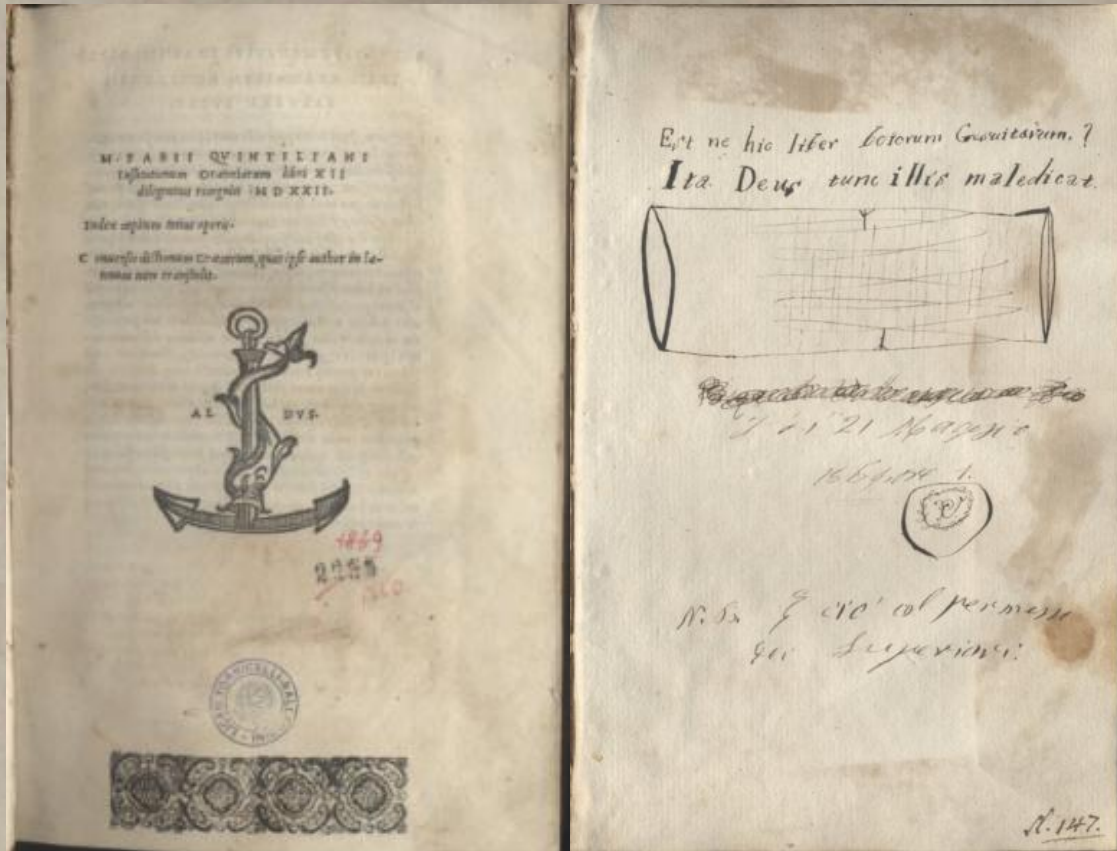 M. FABII QVINTILIANI
Institutionum Oratoriarum libri XII
diligentius recogniti MDXXII.
Index capitum totius operis.
Conuersio dictionum Græcarum, quas ipse author in la-
tinum non transtulit.
AL DVS.
1869
Est ne hic liber totorum Gesuitarum.?
Ita Deus tunc illis maledicat.
21
1.
N. B. ciò col permesso
dei Superiori.
N. 147.